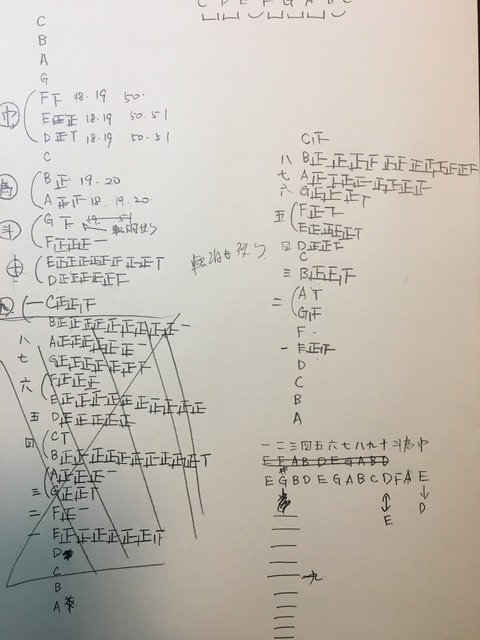 C D E F G A B C
C
B
A
G
巾 F 下 18.19 50.
E 正正 18.19 50.51
D 正T 18.19 50.51
C
為 B 正 19.20
A 正正 18.19.20
斗 G 下 19 51
F 正正正一
E 正正正正正正正T
D 正正正正正下
一 C 正正下
B 正正正正正正正正一
八 A 正正正正一
七 G 正正正正正
六 F 正正正
E 正正正正正正正正正
五 D 正正正正正
四 C T
B 正正正正正正正正正T
A 正正正一
三 G 正正T
二 F 正一
一 E 正正正正正正
D
C
B
A
C 下
八 B 正正正正正正正正正
七 A 正正正正正正正
六 G 正正正T
五 F 正下
E 正正正正T
四 D 正正下
C
三 B 正正正下
二 A T
G 下
F
一 E 正正
D
C
B
A
一二三四五六七八九十斗為巾
E F A B D E G A B D
E G B D E G A B C D F A E
D
E
一九